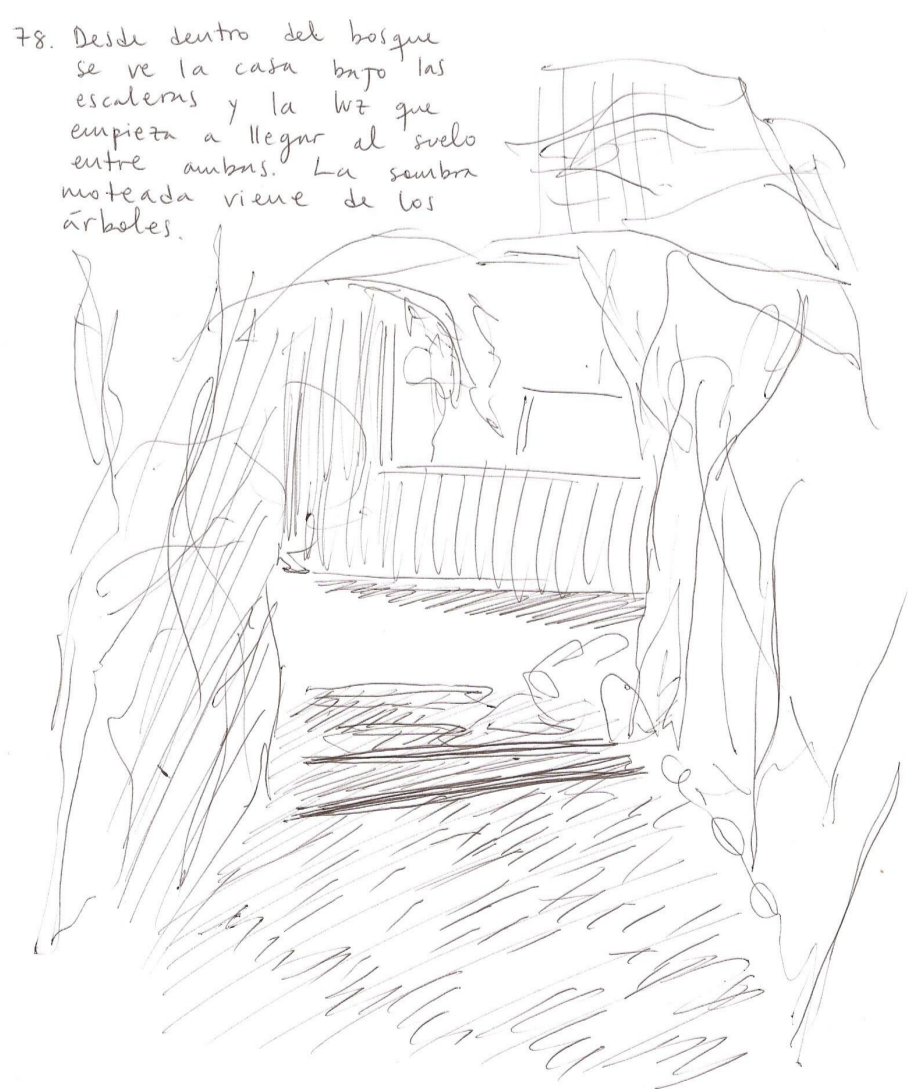 78. Desde dentro del bosque
se ve la casa bajo las
escaleras y la luz que
empieza a llegar al suelo
entre ambas. La sombra
moteada viene de los
árboles.